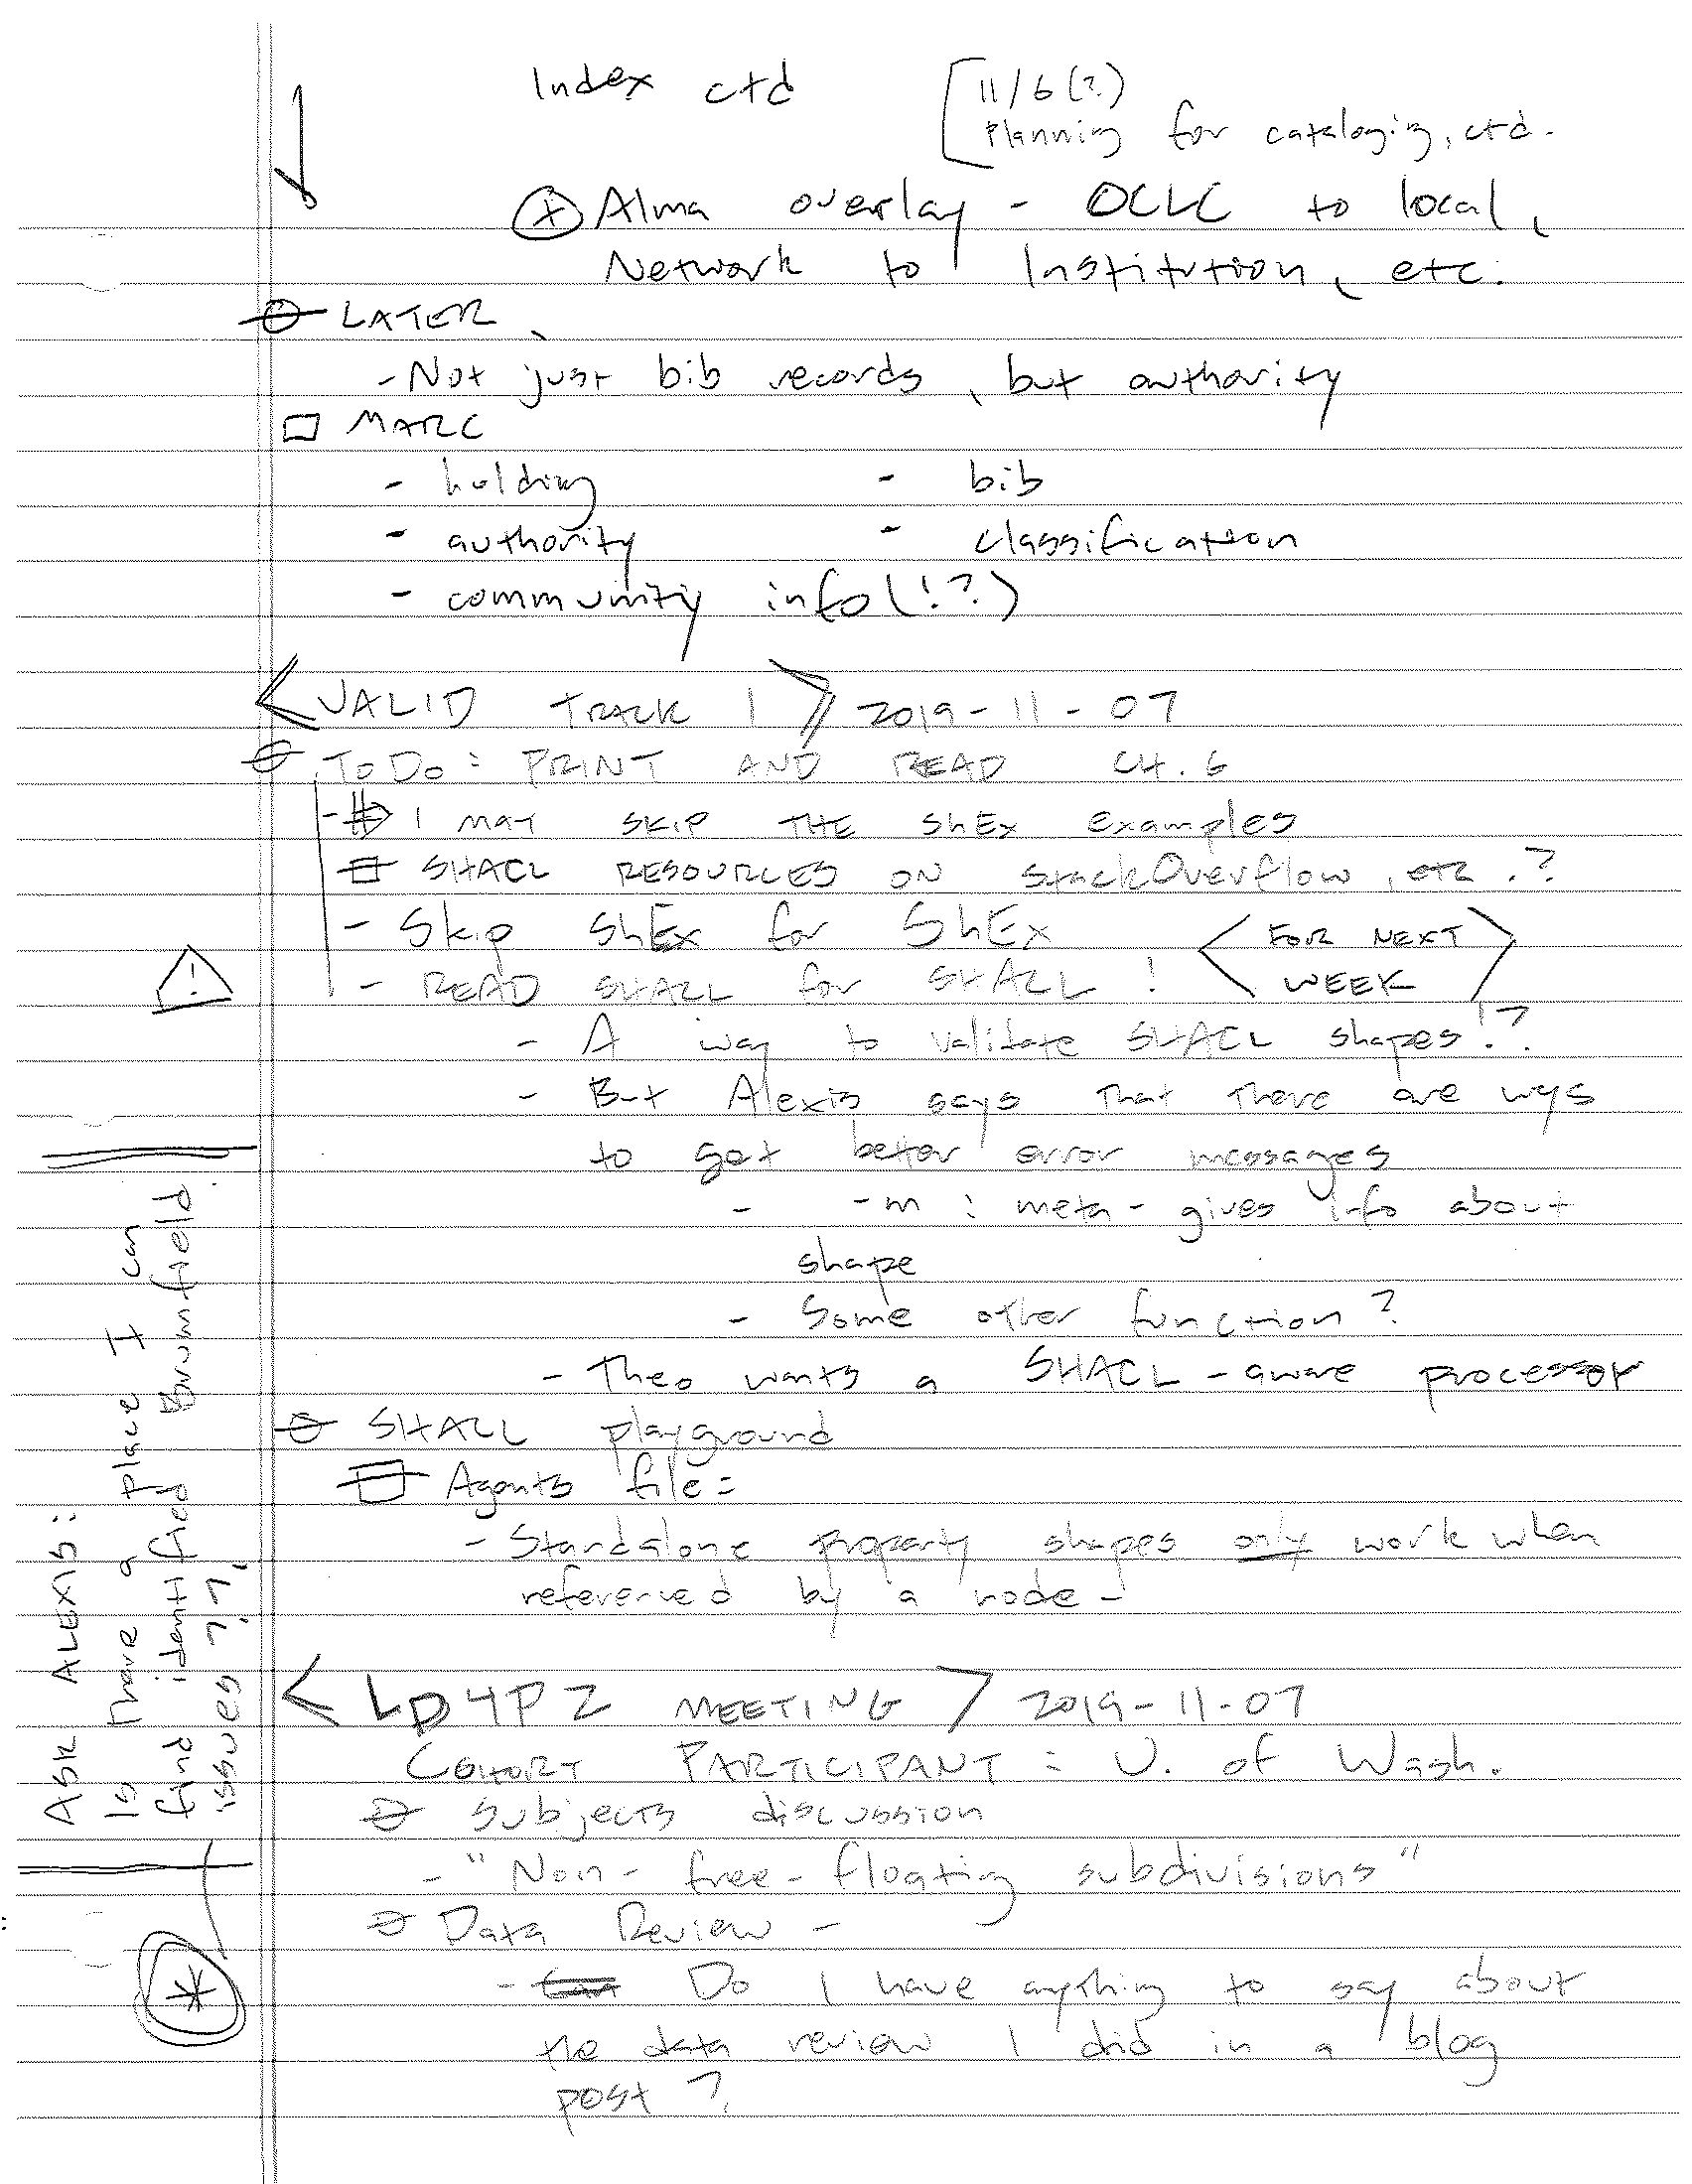 Index ctd
[11/6(?)
Planning for cataloging, ctd.
⊕ Alma overlay - OCLC to local,
Network to Institution, etc.
LATER
- Not just bib records, but authority
□ MARC
- holding - bib
- authority - classification
- community info (!?)
<VALID TRACK 1> 2019-11-07
TO DO: PRINT AND READ CH. 6
- I MAY SKIP THE ShEx examples
SHACL RESOURCES ON StackOverflow, etc.?
- Skip ShEx for ShEx
- READ SHACL for SHACL!
<FOR NEXT
WEEK>
!
- A way to validate SHACL shapes!?
- But Alexis says that there are wys
to get better error messages
- -m : meta - gives info about
shape
- Some other function?
- Theo wants a SHACL-aware processor
SHACL playground
Agents file:
- Standalone property shapes only work when
referenced by a node -
<LD4P2 MEETING> 2019-11-07
COHORT PARTICIPANT: U. of Wash.
Subjects discussion
- "Non-free-floating subdivisions"
Data Review -
- Do I have anything to say about
the data review I did in a blog
post?
ASK ALEXIS:
Is there a place I can
find identified Brumfield
issues ??
*